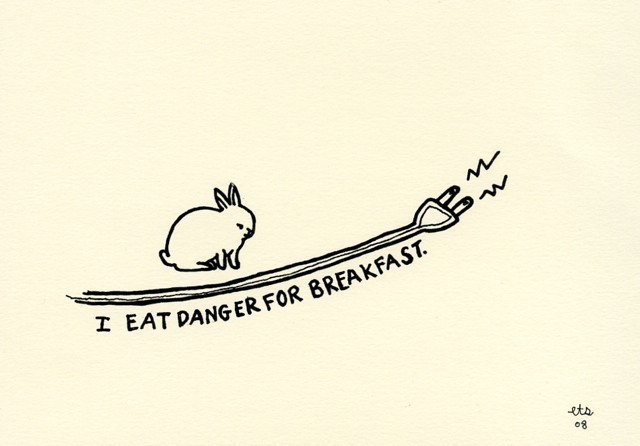 I EAT DANGER FOR BREAKFAST.
ets
08